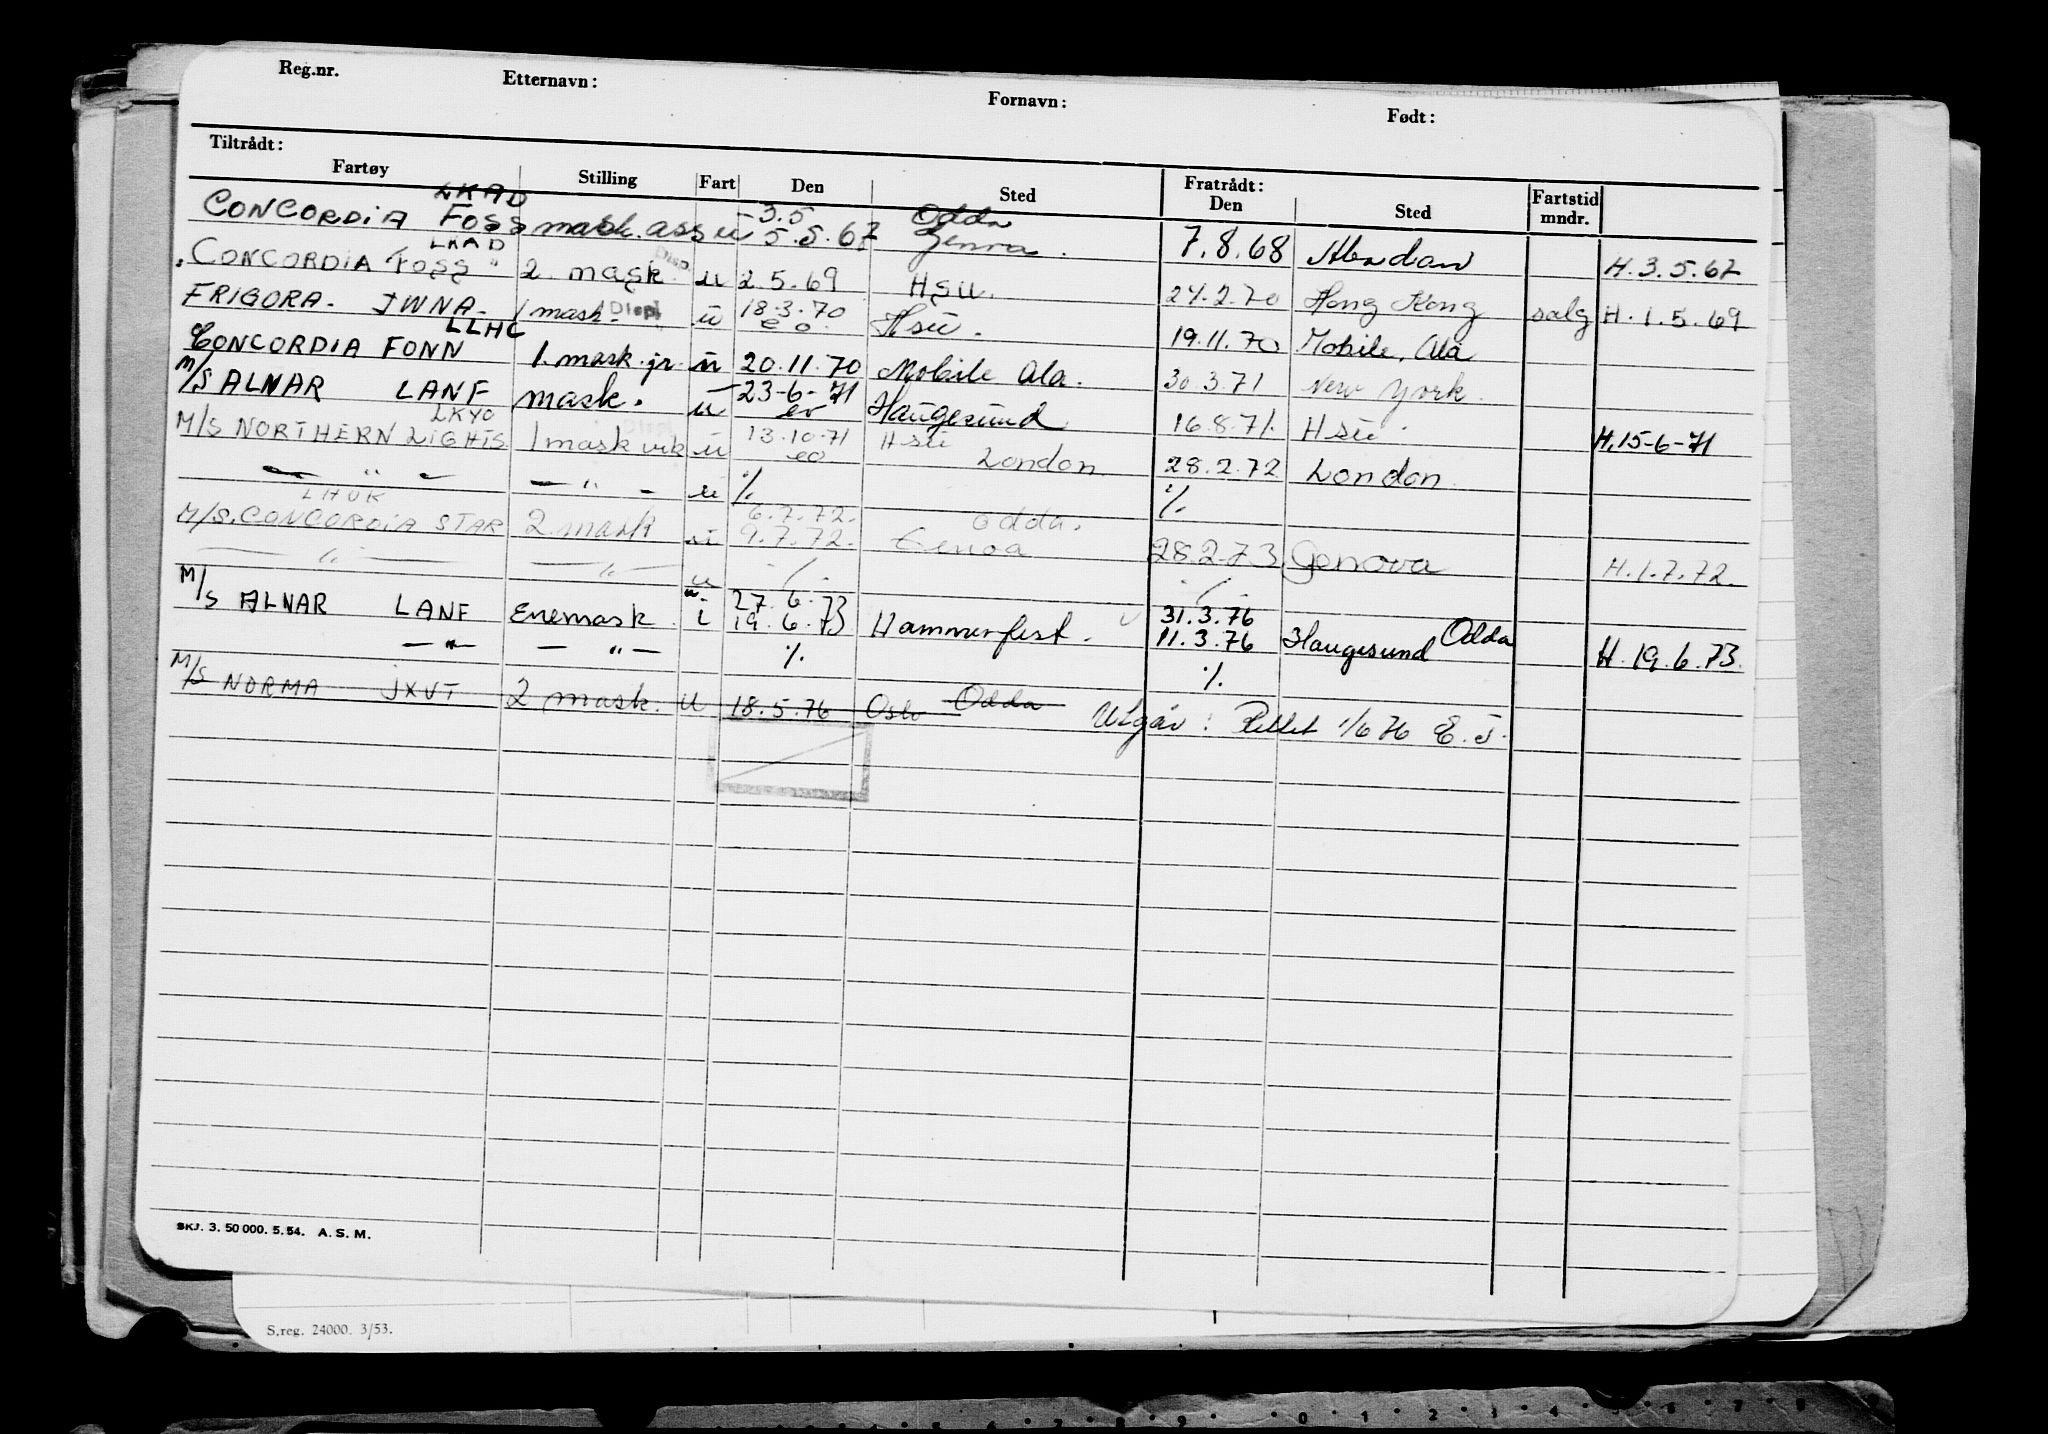 Reg.nr. Etternavn: Fornavn: Født:
Tiltrådt: Fratrådt:
Fartøy Stilling Fart Den Sted Den Sted Fartstid mndr.
LKAD 3.5 Odda
CONCORDIA FOSS mask. ass u 5.5.67 7.8.68 Abadan H. 3.5.67
LKAD Disp.
CONCORDIA FOSS " 2. mask. u 2.5.69 HSU. 24.2.70 Hong Kong salg H. 1.5.69
FRIGORA. JWNA. 1 mask. Disp u 18.3.70 eo. Hsu. 19.11.70 Mobile, Ala
LLHC
CONCORDIA FONN 1. mask. jr. u 20.11.70 Mobile Ala. 30.3.71 New York.
M/S ALNAR LANF mask. u 23-6-71 eo Haugesund 16.8.71. Hsu. H. 15-6-71
LKYO Disp
M/S NORTHERN LIGHTS. 1 mask vik u 13.10.71 eo Hsu London 28.2.72 London.
— " — — " — u %. %.
LHUK 6.7.72. Odda.
M/S. CONCORDIA STAR 2 mask u 9.7.72. Genoa 28.2.73 Genova H. 1.7.72.
— " — — " — u %. %.
u. 27.6.73 31.3.76
M/S ALNAR LANF Enemask i 19.6.73 Hammerfest. 11.3.76 Haugesund Odda H. 19.6.73.
— " — — " — %. %.
M/S NORMA JXVT 2 mask. u 18.5.76 Oslo Odda Utgår: Rettet 1/6 76 E.J.
SKJ. 3. 50 000. 5. 54. A. S. M.
S.reg. 24000. 3/53.